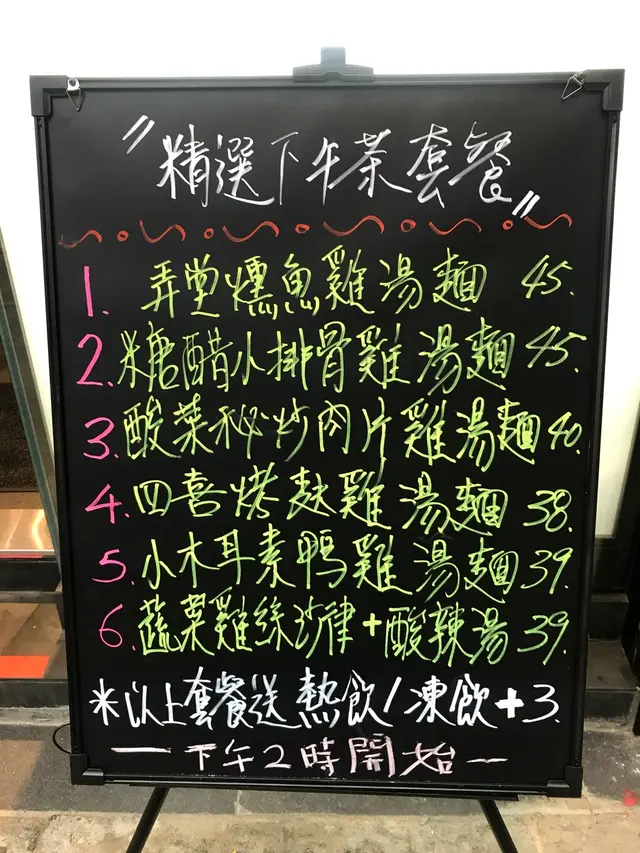 〃精選下午茶套餐〃
1. 弄堂燻魚雞湯麵 45.
2. 糖醋小排骨雞湯麵 45.
3. 酸菜秘炒肉片雞湯麵 40.
4. 四喜烤麩雞湯麵 38.
5. 小木耳素鴨雞湯麵 39.
6. 蔬菜雞絲沙律+酸辣湯 39.
*以上套餐送熱飲/凍飲+3.
一下午2時開始一